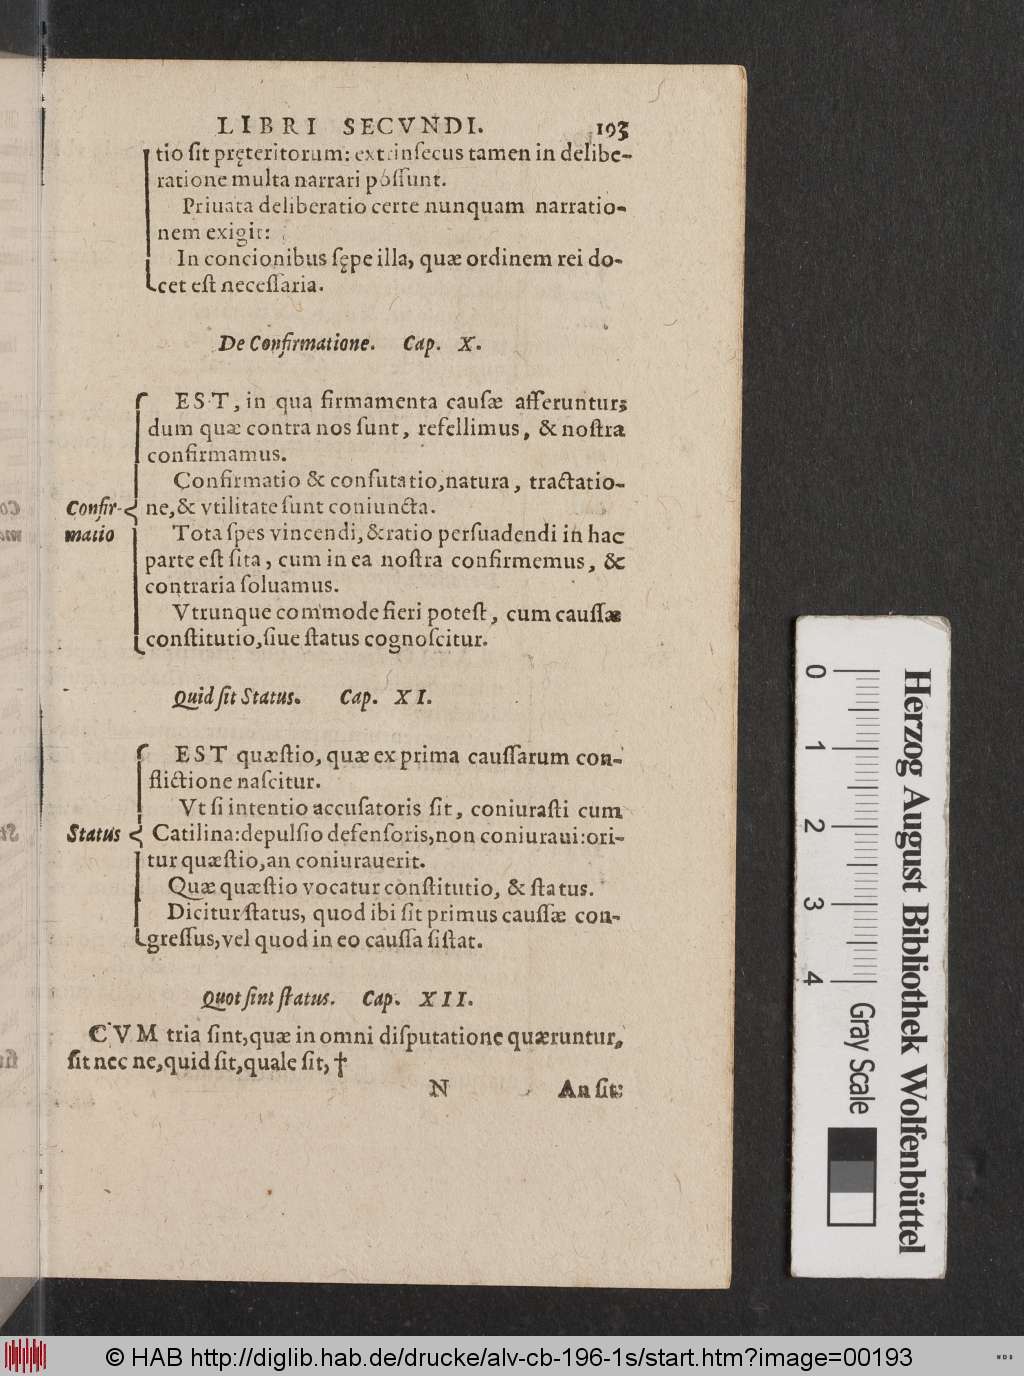 LIBRI SECVNDI. 193
tio ſit pręteritorum: extrinſecus tamen in delibe-
ratione multa narrari poſſunt.
Priuata deliberatio certe nunquam narratio-
nem exigit:
In concionibus ſępe illa, quæ ordinem rei do-
cet eſt neceſſaria.
De Confirmatione. Cap. X.
EST, in qua firmamenta cauſæ afferuntur;
dum quæ contra nos ſunt, refellimus, & noſtra
confirmamus.
Confirmatio & confutatio, natura, tractatio-
Confir- ne, & vtilitate ſunt coniuncta.
matio Tota ſpes vincendi, & ratio perſuadendi in hac
parte eſt ſita, cum in ea noſtra confirmemus, &
contraria ſoluamus.
Vtrunque commode fieri poteſt, cum cauſſæ
conſtitutio, ſiue ſtatus cognoſcitur.
Quid ſit Status. Cap. XI.
EST quæſtio, quæ ex prima cauſſarum con-
flictione naſcitur.
Vt ſi intentio accuſatoris ſit, coniuraſti cum
Status Catilina: depulſio defenſoris, non coniuraui: ori-
tur quæſtio, an coniurauerit.
Quæ quæſtio vocatur conſtitutio, & ſtatus.
Dicitur ſtatus, quod ibi ſit primus cauſſæ con-
greſſus, vel quod in eo cauſſa ſiſtat.
Quot ſint ſtatus. Cap. XII.
CVM tria ſint, quæ in omni diſputatione quæruntur,
ſit nec ne, quid ſit, quale ſit, †
N An ſit:
0 1 2 3 4
Gray Scale
Herzog August Bibliothek Wolfenbüttel
© HAB http://diglib.hab.de/drucke/alv-cb-196-1s/start.htm?image=00193